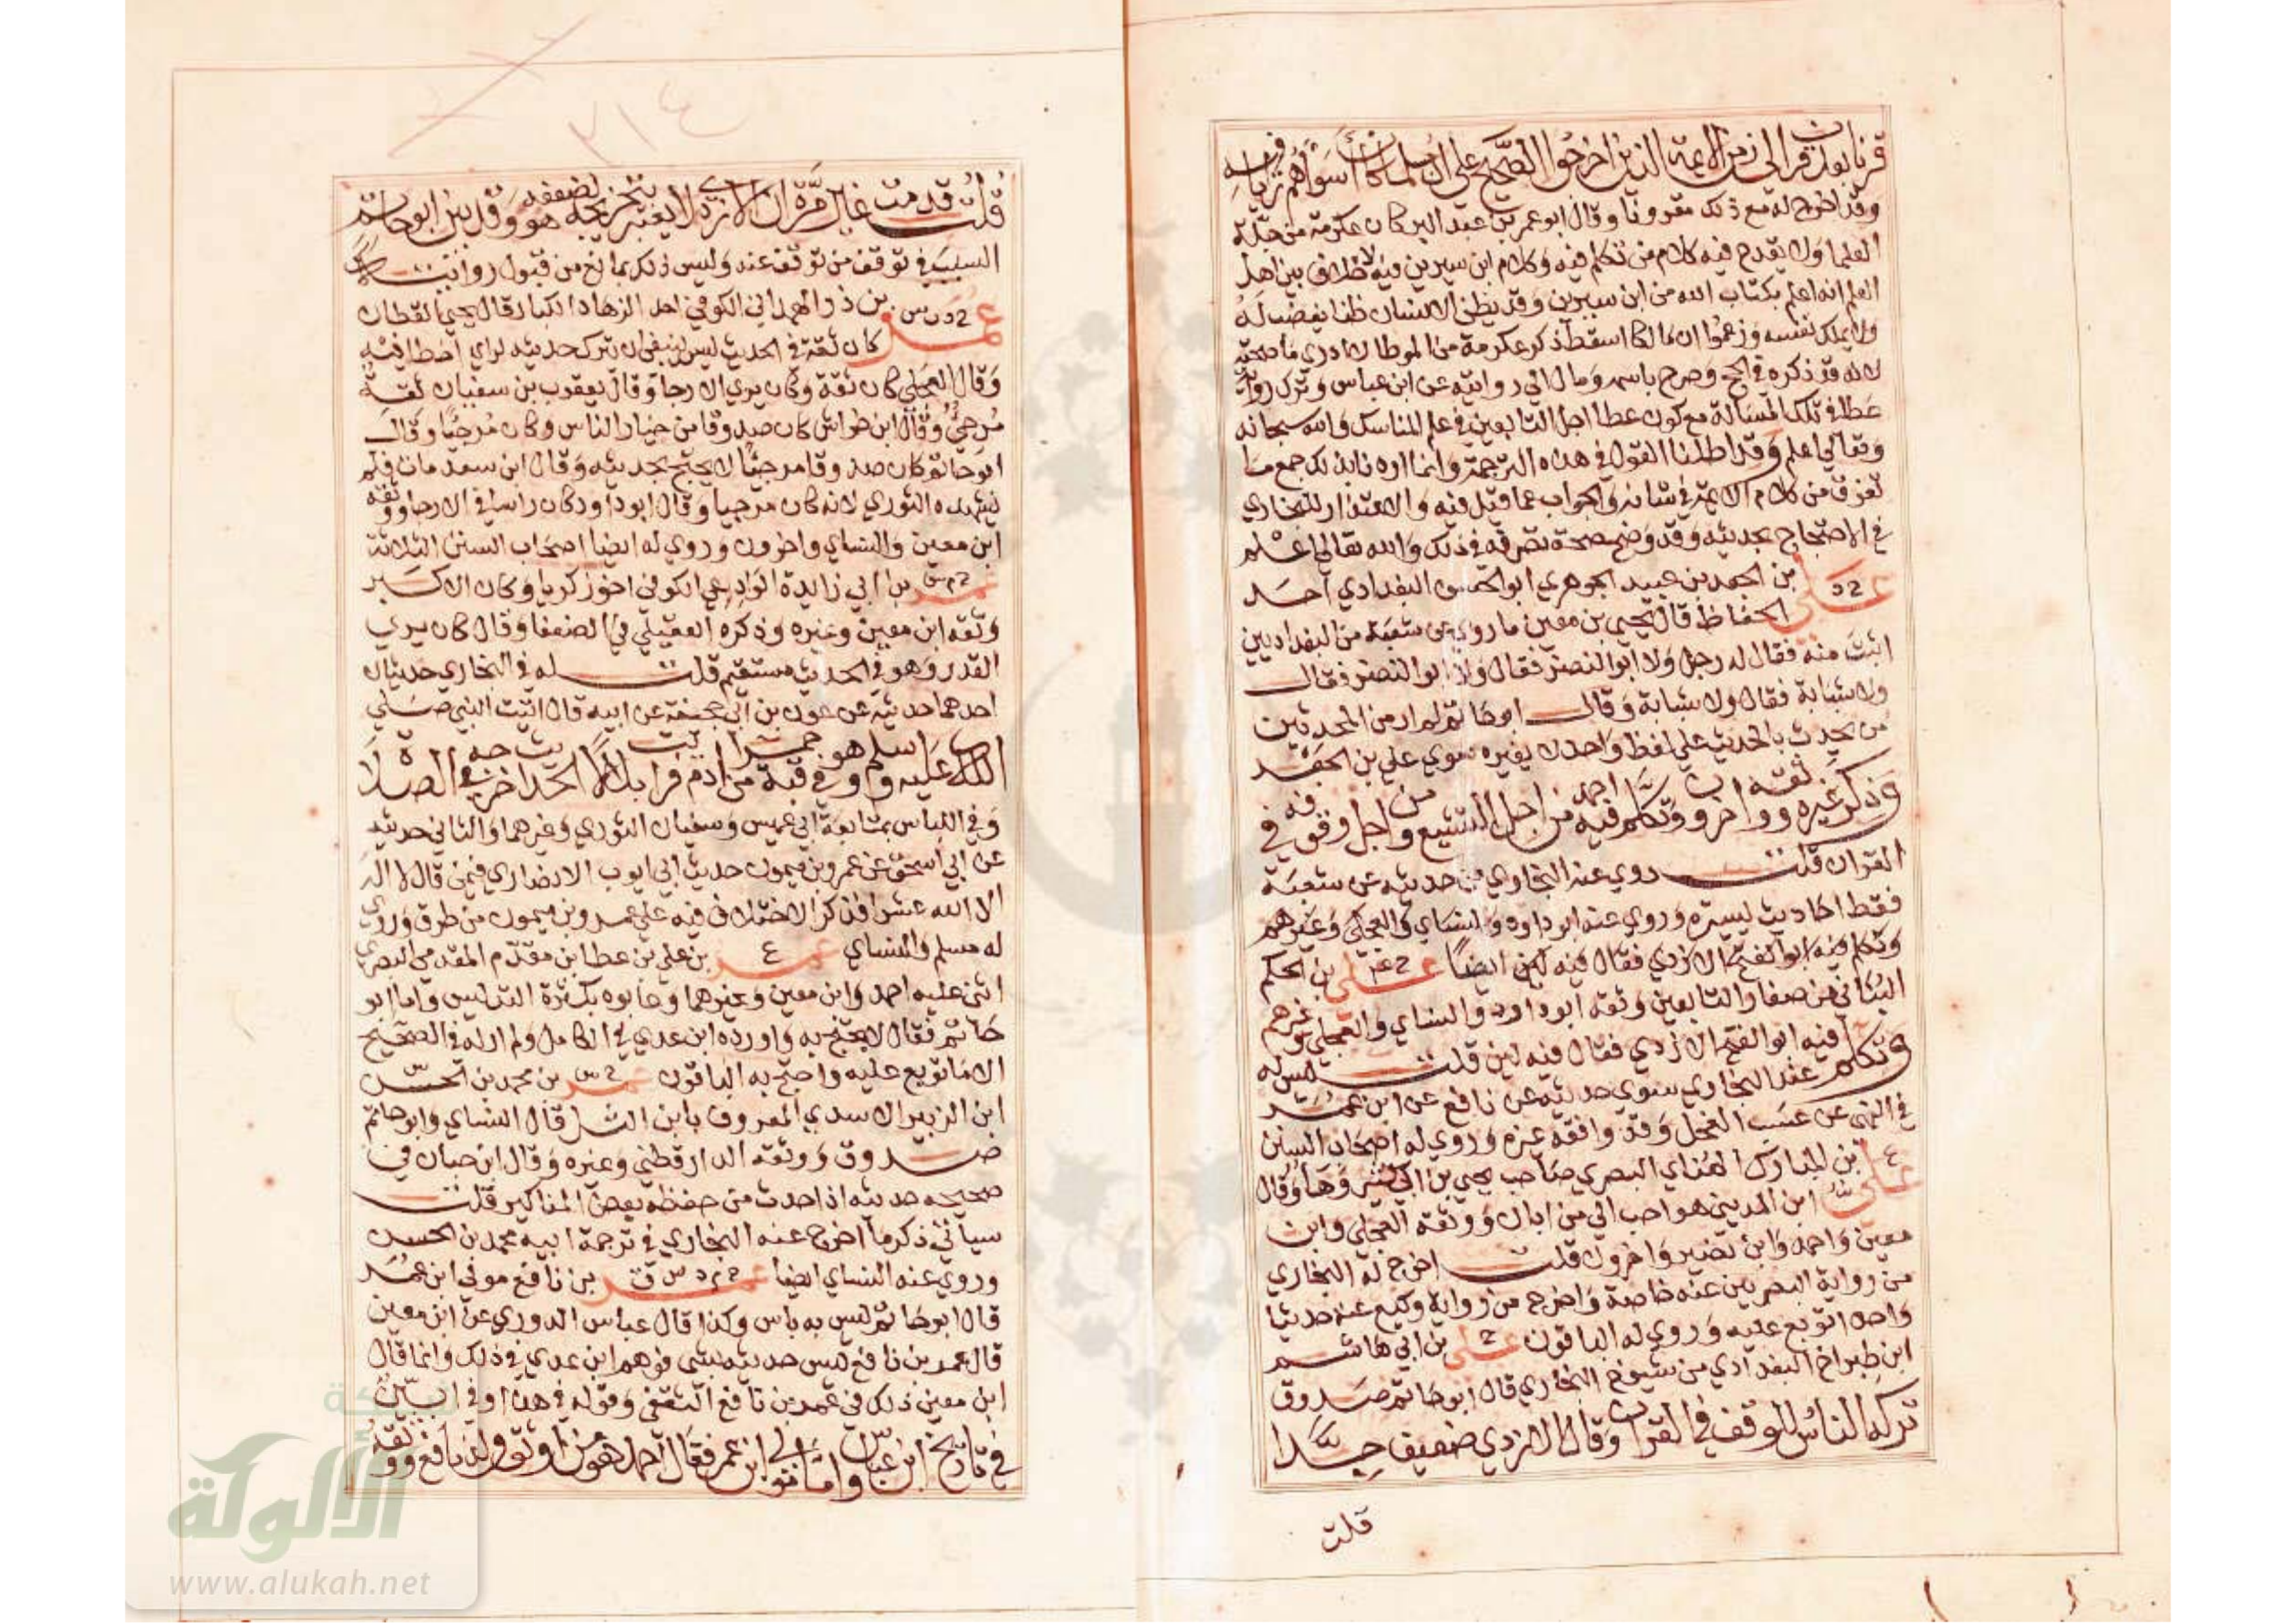 قرنا بعد قرن الى زمن الايمة الذين اخرجوا الصحيح على ان مسلما كان اسواهم رايا فيه
وقد اخرج له مع ذلك مقرونا وقال ابو عمر بن عبد البر كان عكرمة من جلة
العلما ولا يقدح فيه كلام من تكلم فيه وكلام ابن سيرين فيه لا خلاف بين اهل
العلم انه اعلم بكتاب الله من ابن سيرين وقد يظن الانسان ظنا يغضب له
ولا يملك نفسه وزعموا ان مالكا اسقط ذكر عكرمة من الموطا لا ادري ما صحته
لانه قد ذكره في الحج وصرح باسمه ومال الى روايته عن ابن عباس وترك رواية
عطا في تلك المسالة مع كون عطا اجل التابعين في علم المناسك والله سبحانه
وتعالى اعلم وقد اطلنا القول في هذه الترجمة وانما اردنا بذلك جمع ما
تفرق من كلام الايمة في شانه والجواب عما قيل فيه والاعتذار للبخاري
في الاحتجاج بحديثه وقد وضح صحة تصرفه في ذلك والله تعالى اعلم
علي خ د بن الجعد بن عبيد الجوهري ابو الحسن البغدادي احد
الحفاظ قال يحيى بن معين ما روى عن شعبة من البغداديين
اثبت منه فقال له رجل ولا ابو النضر فقال ولا ابو النضر فقال
ولا شبابة فقال ولا شبابة وقال ابو حاتم لم ار من المحدثين
من يحدث بالحديث على لفظ واحد لا يغيره سوى علي بن الجعد
وذكر غيره ووثقه اخرون وتكلم فيه احمد من اجل التشيع ومن اجل وقوفه في
القران قلت روى عنه البخاري من حديثه عن شعبة
فقط احاديث يسيرة وروى عنه ابو داود والنساي والعجلي وغيرهم
وتكلم فيه ابو الفتح الازدي فقال فيه لين ايضا علي خ عم بن الحكم
البناني من صغار التابعين وثقه ابو داود والنساي والعجلي وغيرهم
وتكلم فيه ابو الفتح الازدي فقال فيه لين قلت ليس له
عند البخاري سوى حديثه عن نافع عن ابن عمر
في النهي عن عسب الفحل وقد وافقه غيره وروى له اصحاب السنن
علي ع بن المبارك الهناي البصري صاحب يحيى بن ابي كثير وهاه وقال
ابن المديني هو احب الي من ابان ووثقه العجلي وابن
معين واحمد وابن نمير واخرون قلت اخرج له البخاري
من رواية البصريين عنه خاصة واخرج من رواية وكيع عنه حديثا
واحدا توبع عليه وروى له الباقون علي خ بن ابي هاشم
ابن طبراخ البغدادي من شيوخ البخاري قال ابو حاتم صدوق
تركه الناس للوقف في القران وقال الازدي ضعيف جدا
قلت
٣١٤
قلت قدمت غير مرة ان الازدي لا يعتبر بتخريجه لضعفه هو وقد بين ابو حاتم
السبب في توقف من توقف عنه وليس ذلك بمانع من قبول روايته
عمر خ د ت س بن ذر الهمداني الكوفي احد الزهاد الكبار قال يحيى القطان
كان ثقة في الحديث ليس ينبغي ان يترك حديثه لراي اخطا فيه
وقال العجلي كان ثقة وكان يرى الارجا وقال يعقوب بن سفيان ثقة
مرجي وقال ابن خراش كان صدوقا من خيار الناس وكان مرجيا وقال
ابو حاتم كان صدوقا مرجيا لا يحتج بحديثه وقال ابن سعد مات فلم
يشهده الثوري لانه كان مرجيا وقال ابو داود كان راسا في الارجا ووثقه
ابن معين والنساي واخرون وروى له ايضا اصحاب السنن الثلاثة
عمر خ م س بن ابي زايدة الوادعي الكوفي اخو زكريا وكان الاكبر
وثقه ابن معين وغيره وذكره العقيلي في الضعفا وقال كان يرى
القدر وهو في الحديث مستقيم قلت له في البخاري حديثان
احدهما حديثه عن عون بن ابي جحيفة عن ابيه قال اتيت النبي صلى
الله عليه وسلم وهو في قبة حمرا من ادم فرايت بلالا الحديث اخرجه في الصلاة
وفي اللباس بمتابعة ابي عميس وسفيان الثوري وغيرهما والثاني حديثه
عن ابي اسحق عن عمرو بن ميمون حديث ابي ايوب الانصاري فيمن قال لا اله
الا الله عشرا فذكر الاختلاف فيه على عمرو بن ميمون من طرق وروى
له مسلم والنساي عمر ع بن علي بن عطا ابن مقدم المقدمي البصري
اثنى عليه احمد وابن معين وغيرهما وعابوه بكثرة التدليس واما ابو
حاتم فقال لا يحتج به واورده ابن عدي في الكامل ولم ار له في الصحيح
الا ما توبع عليه واحتج به الباقون عمر خ س بن محمد بن الحسن
ابن الزبير الاسدي المعروف بابن التل قال النساي وابو حاتم
صدوق ووثقه الدارقطني وغيره وقال ابن حبان في
صحيحه حديثه اذا حدث من حفظه بعض المناكير قلت
سياتي ذكر ما اخرج عنه البخاري في ترجمة ابيه محمد بن الحسن
وروى عنه النساي ايضا عمر خ م د س ق بن نافع مولى ابن عمر
قال ابو حاتم ليس به باس وكذا قال عباس الدوري عن ابن معين
قال عمر بن نافع ليس حديثه بشي فوهم ابن عدي في ذلك وانما قال
ابن معين ذلك في عمر بن نافع الثقفي وقوله في هذا وفي
في تاريخ ابن عباس واما مولى ابن عمر فقال احمد هو من اوثق ولد نافع ووثقه
شبكة
الألوكة
www.alukah.net